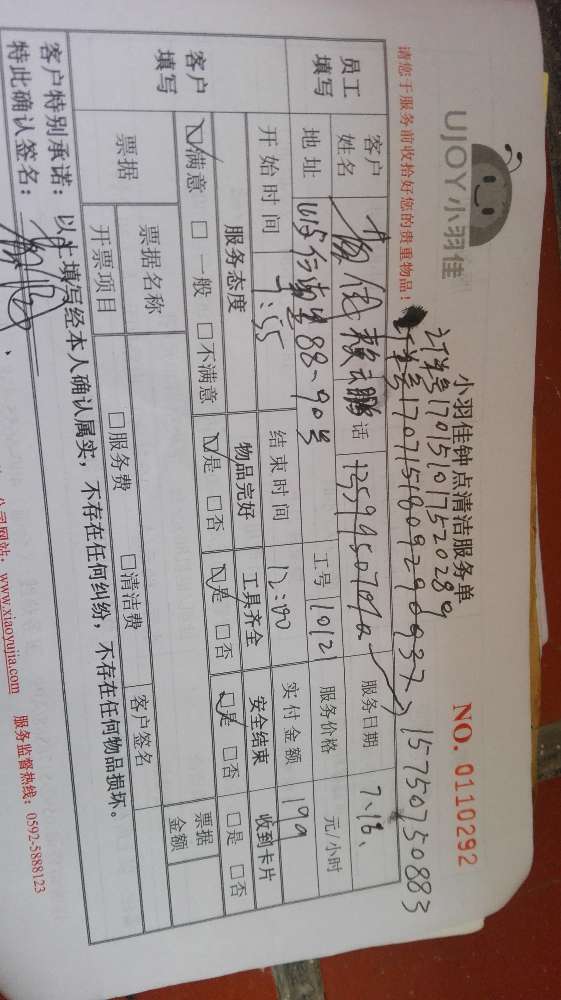 UJOY小羽佳
小羽佳钟点清洁服务单
NO. 0110292
请您于服务前收拾好您的贵重物品！
15750750883
员工填写
客户姓名
话
服务日期 7.16.
地址
88-90号
工号 1012
服务价格
元/小时
开始时间
:55
结束时间 12:00
实付金额 199
客户填写
服务态度
物品完好
工具齐全
安全结束
收到卡片
☑满意 □一般 □不满意
☑是 □否
☑是 □否
☑是 □否
□是 □否
票据
票据名称
客户签名
票据金额
开票项目
□服务费 □清洁费
客户特别承诺：以上填写经本人确认属实，不存在任何纠纷，不存在任何物品损坏。
特此确认签名：
公司网站：www.xiaoyujia.com 服务监督热线：0592-5888123